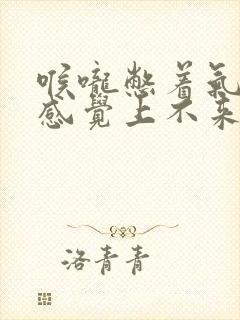 喉嚨憋着氣
感覺上不來
洛青青